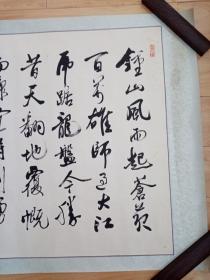 鍾山風雨起蒼茫
百萬雄師過大江
虎踞龍盤今勝
昔天翻地覆慨